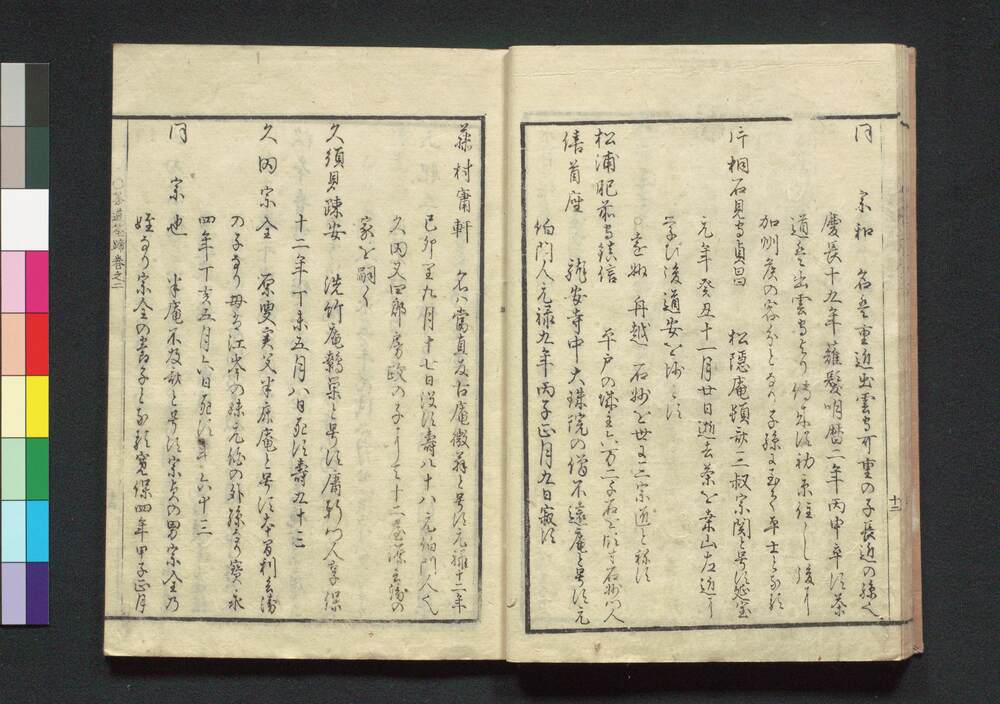 同 宗和 名ハ重近出雲守可重の子長近の孫也
慶長十九年薙髪明暦二年丙申卒す茶
道ハ出雲守より傳来す初京住しし後に
加州侯の客分となる子孫に至り卒士となる
片桐石見守貞昌 松隠庵頓斎三叔宗関と号す延宝
元年癸丑十一月廿日逝去茶を桑山左近に
学び後道安に
遠州 丹越 石州を世に三宗道と称す
松浦肥前守鎮信 平戸の城主六万 石州門人
倍首座 龍安寺中大珠院の僧不遠庵と号す元
伯門人元禄九年丙子正月九日寂す
十二
藤村庸軒 名ハ當直反古庵微翁と号す元禄十二年
己卯閏九月十七日没す壽八十八元伯門人也
久田又四郎房政の子にして十二屋源兵衛の
家を嗣く
久須見疎安 洗竹庵鷦巣と号す庸軒門人享保
十二年丁未五月八日死す壽九十三
久田宗全 原叟実父半床庵と号す本間利兵衛
の子なり母ハ江岑の妹元伯の外孫なり寳永
四年丁亥五月六日死す年六十三
同 宗也 半庵不及斎と号す宗貞の男宗全乃
姪なり宗全の養子となる寛保四年甲子正月
茶道筌蹄巻之二